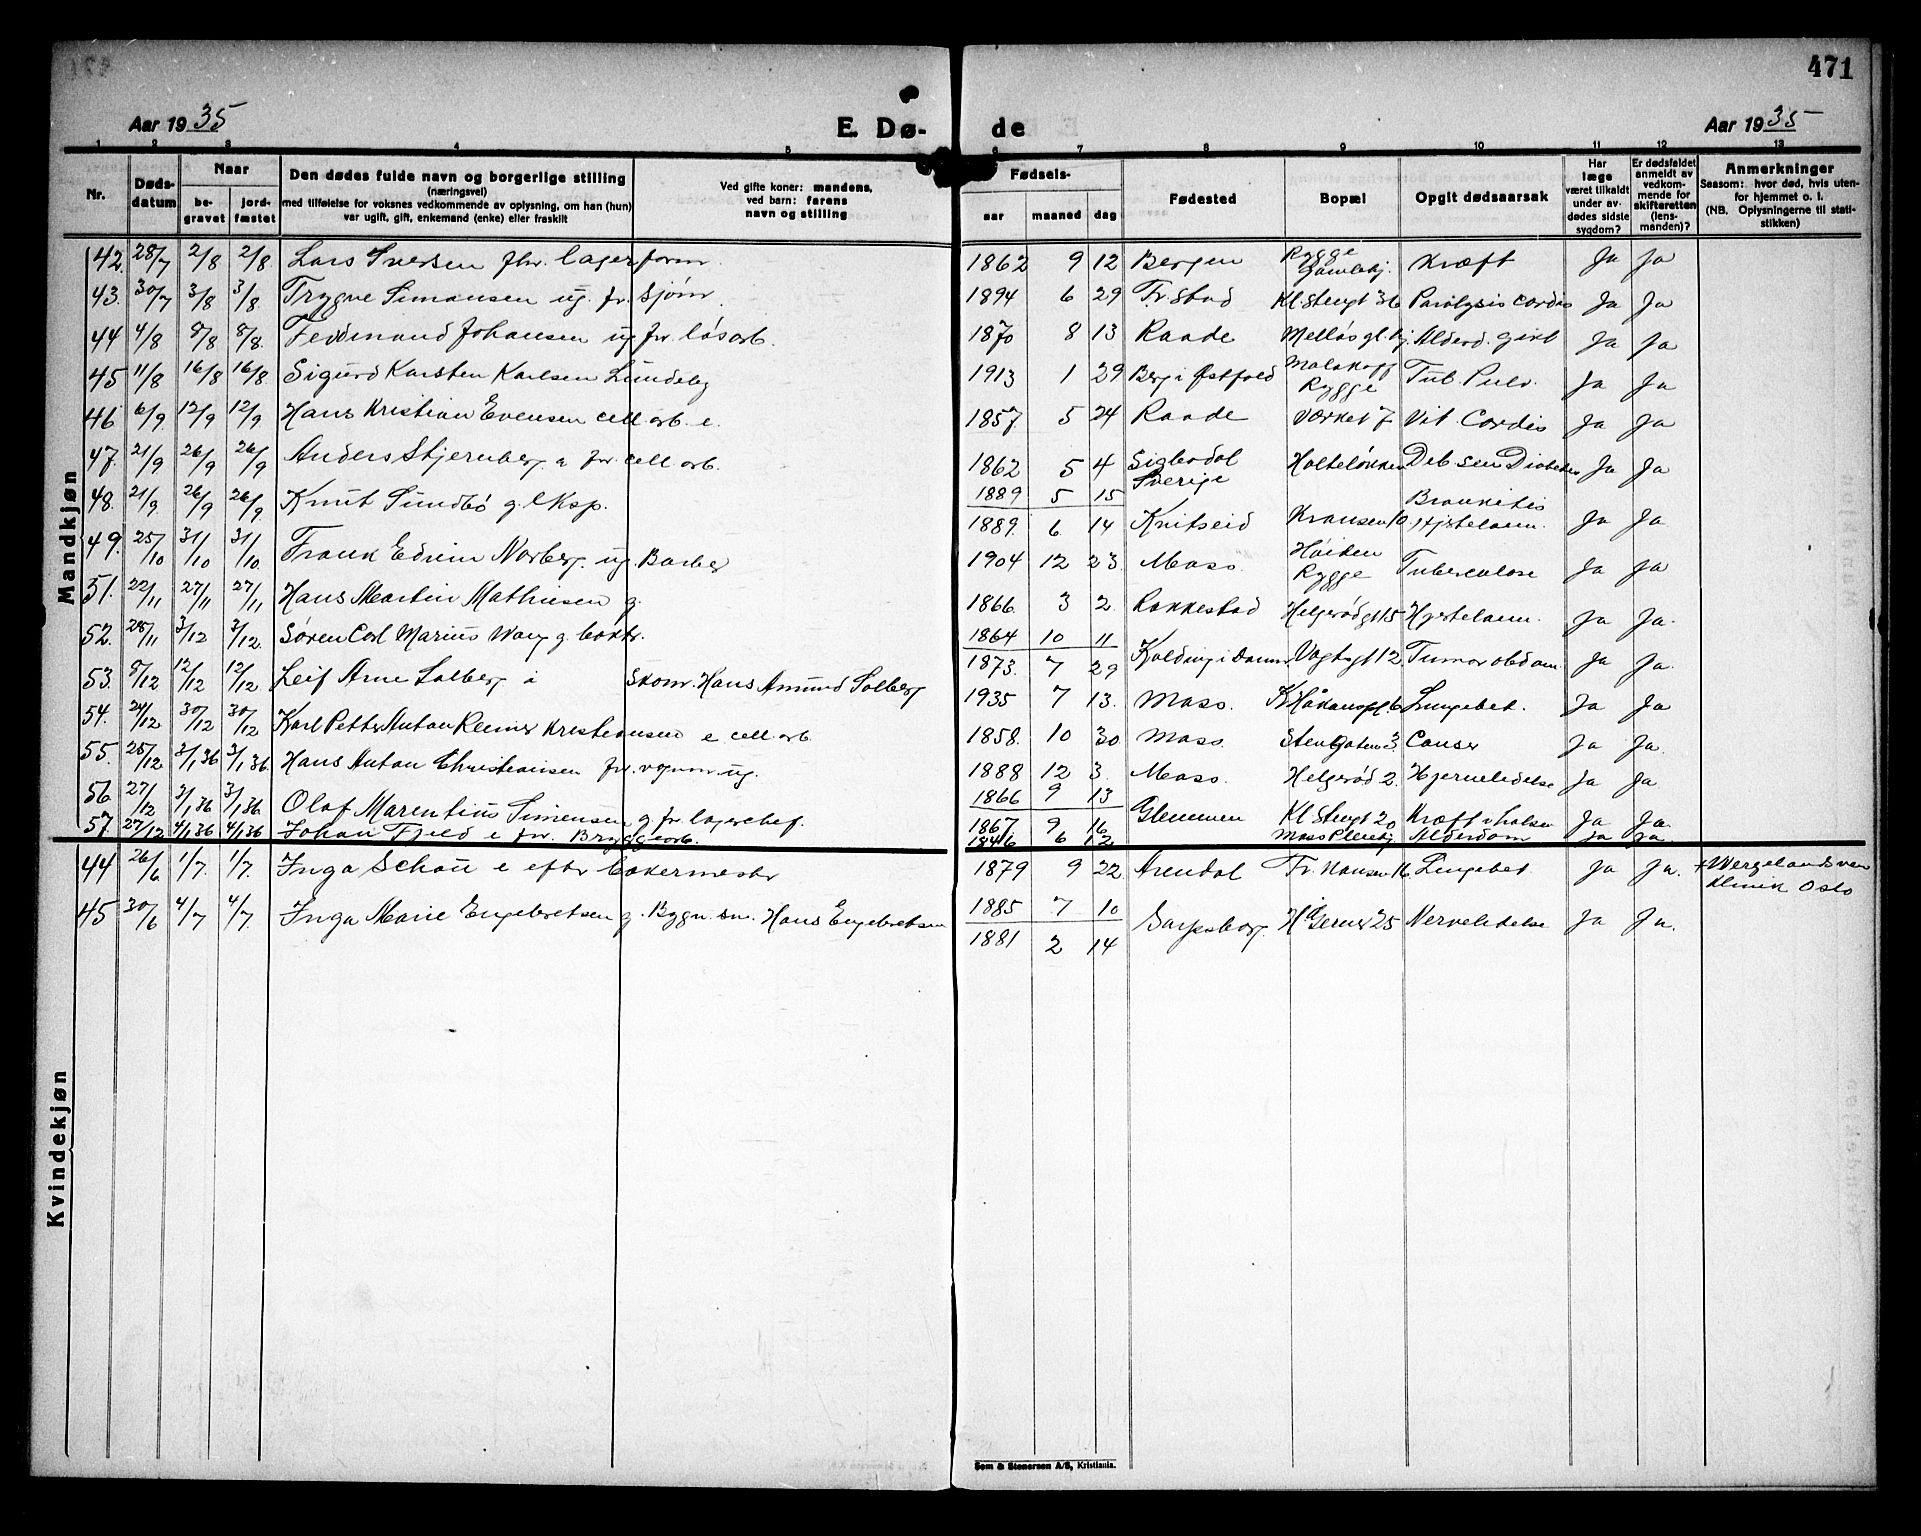 471
Aar 1935
E. Dø-
de
Aar 1935
1 2 3 4 5 6 7 8 9 10 11 12 13
Nr.
Døds-
datum
Naar
be-
gravet
jord-
fæstet
Den dødes fulde navn og borgerlige stilling
(næringsvei)
med tilføielse for voksnes vedkommende av oplysning, om han (hun)
var ugift, gift, enkemand (enke) eller fraskilt
Ved gifte koner: mandens,
ved barn: farens
navn og stilling
Fødsels-
aar maaned dag
Fødested
Bopæl
Opgit dødsaarsak
Har
læge
været tilkaldt
under av-
dødes sidste
sygdom?
Er dødsfaldet
anmeldt av
vedkom-
mende for
skifteretten
(lens-
manden)?
Anmerkninger
Saasom: hvor død, hvis uten-
for hjemmet o. l.
(NB. Oplysningerne til stati-
stikken)
Mandkjøn
42. 28/7 2/8 2/8. Lars Iversen fhv. lagerform. 1862 9 12 Bergen Rygge Gamlebj. Kræft Ja Ja
43. 30/7 3/8 3/8. Trygve Simonsen ug. fv. sjøm. 1894 6 29 Fr.stad Kl. Stengt 36 Paralysis cordis Ja Ja
44 4/8 8/8 8/8. Ferdinand Johansen ug fv. løsarb. 1870 8 13 Raade Melløs gl. hj. Alderd. gikt Ja Ja
45 11/8 16/8 16/8. Sigurd Karsten Karlsen Lundeby 1913 1 29 Berg i Østfold Malakoff Rygge Tub. Pulv. Ja Ja
46 6/9 12/9 12/9 Hans Kristian Evensen cell.arb. e. 1857. 5 24 Raade Værket 7 Vit. Cordis Ja Ja
47. 21/9 26/9 26/9 Anders Stjernberg e fv. cell arb. 1862 5 4 Sverige Holteløkken Deb. sen Diabetes Ja Ja
48. 21/9 26/9 26/9. Knut Sundbø g. Eksp. 1889 5 15
1889. 6. 14 Kvitseid Kransen 10. Bronkitis Hjertelam. Ja Ja
49. 25/10 31/10 31/10. Frank Edvin Norberg. ug. Barber 1904 12 23. Moss. Høiden Rygge Tuberculose Ja Ja
51. 22/11 27/11 27/11 Hans Martin Mathiesen g. 1866. 3 2. Rakkestad Helgerødgt 15 Hjertelam. Ja Ja.
52. 28/11 3/12 3/12. Søren Carl Marius Wang g. 1864 10 11
1873. 7 29 Kolding i Danm. Vogtsgt 12 Tumor abdom. Ja Ja.
53. 8/12 12/12 12/12 Leif Arne Solberg i Skom. Hans Amund Solberg 1935 7 13. Moss. K. Håkonspl. 6 Lungebet. Ja Ja
54. 24/12 30/12 30/12 Karl Petter Anton Reiner Kristiansen e cell arb. 1858. 10 30 Moss. Stengaten 3. Cancer Ja Ja.
55. 25/12 3/1 36 3/1 36. Hans Anton Christiansen fv. vognm. ug. 1888 12 3. Moss. Helgerød 2. Hjernelidelse Ja Ja
56 27/12 3/1 36 3/1 36. Olaf Marentius Simensen g fv. lagerchef. 1866 9 13
1867 9 16 Glemmen Kl Stengt 20 Kræft i halsen Ja Ja.
57. 27/12 4/1 36 4/1 36 Johan Fjeld e fv. Bryggearb. 1846 6 12 Moss Pleiehj. Alderdom Ja Ja.
Kvindekjøn
44 26/6 1/7. 1/7. Inga Schou e efter bakermester 1879 9 22 Arendal Fr. Nansen 16. Lungebet. Ja Ja. + Wergelandsvn klinik Oslo
45 30/6 4/7 4/7. Inga Marie Engebretsen g. Bygn. sn. Hans Engebretsen 1885 7 10
1881 2 14 Sarpsborg. H. Gerner 25 Nervelidelse Ja Ja.
Sem & Stenersen A/S, Kristiania.